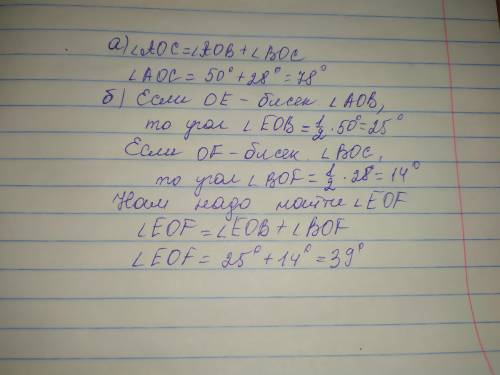 а) ∠AOC=∠AOB+∠BOC
∠AOC = 50°+28°=78°
б) Если OE - бисек ∠AOB,
то угол ∠EOB=1/2·50°=25°
Если OF - бисек ∠BOC,
то угол ∠BOF=1/2·28°=14°
Нам надо найти ∠EOF
∠EOF=∠EOB+∠BOF
∠EOF= 25°+14°=39°